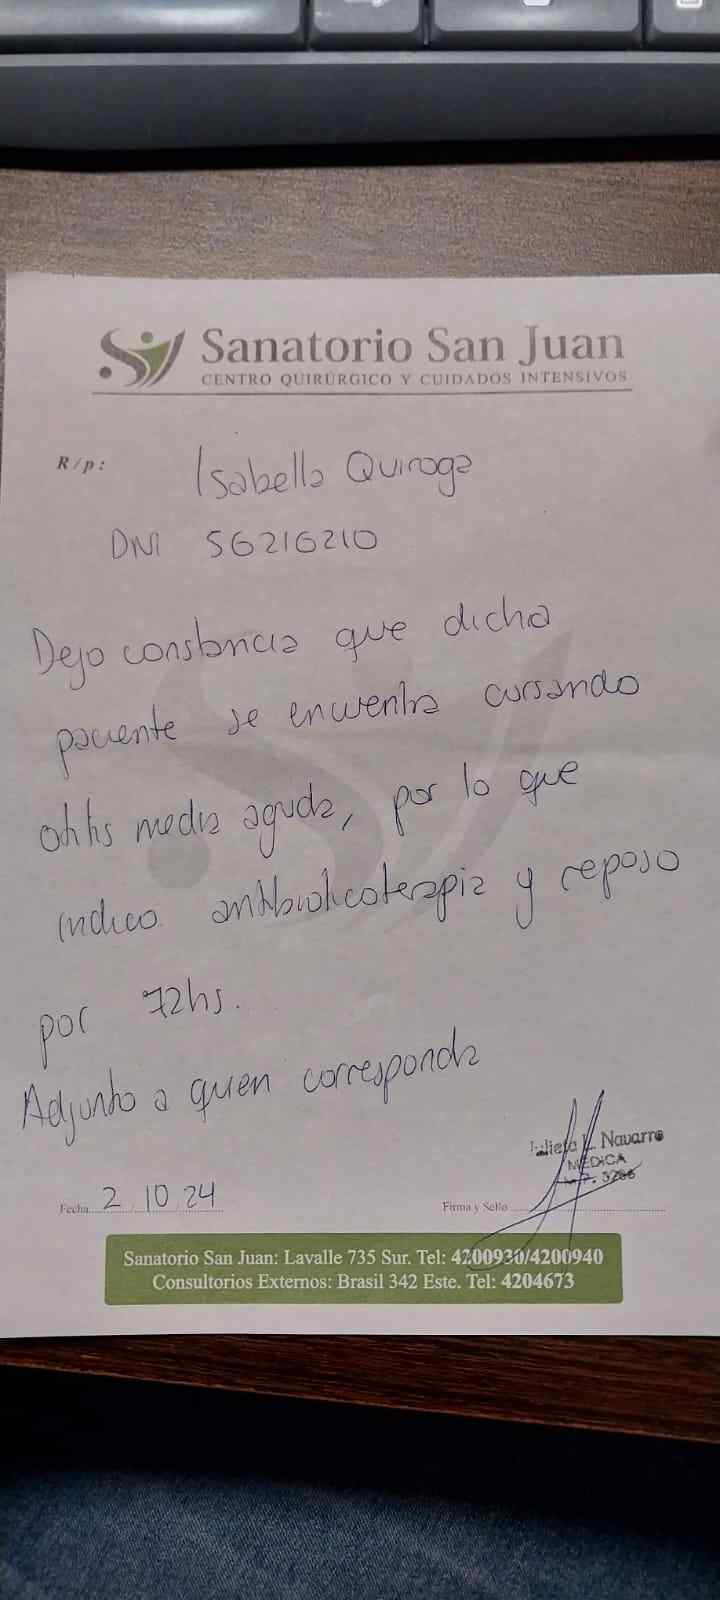 Sanatorio San Juan
CENTRO QUIRÚRGICO Y CUIDADOS INTENSIVOS
R/p: Isabella Quiroga
DNI 56216210
Dejo constancia que dicha
paciente se encuentra cursando
otitis media aguda, por lo que
indico antibioticoterapia y reposo
por 72hs.
Adjunto a quien corresponda
Julieta L. Navarro
MÉDICA
M.P. 3286
Fecha 2 10 24
Firma y Sello
Sanatorio San Juan: Lavalle 735 Sur. Tel: 4200930/4200940
Consultorios Externos: Brasil 342 Este. Tel: 4204673